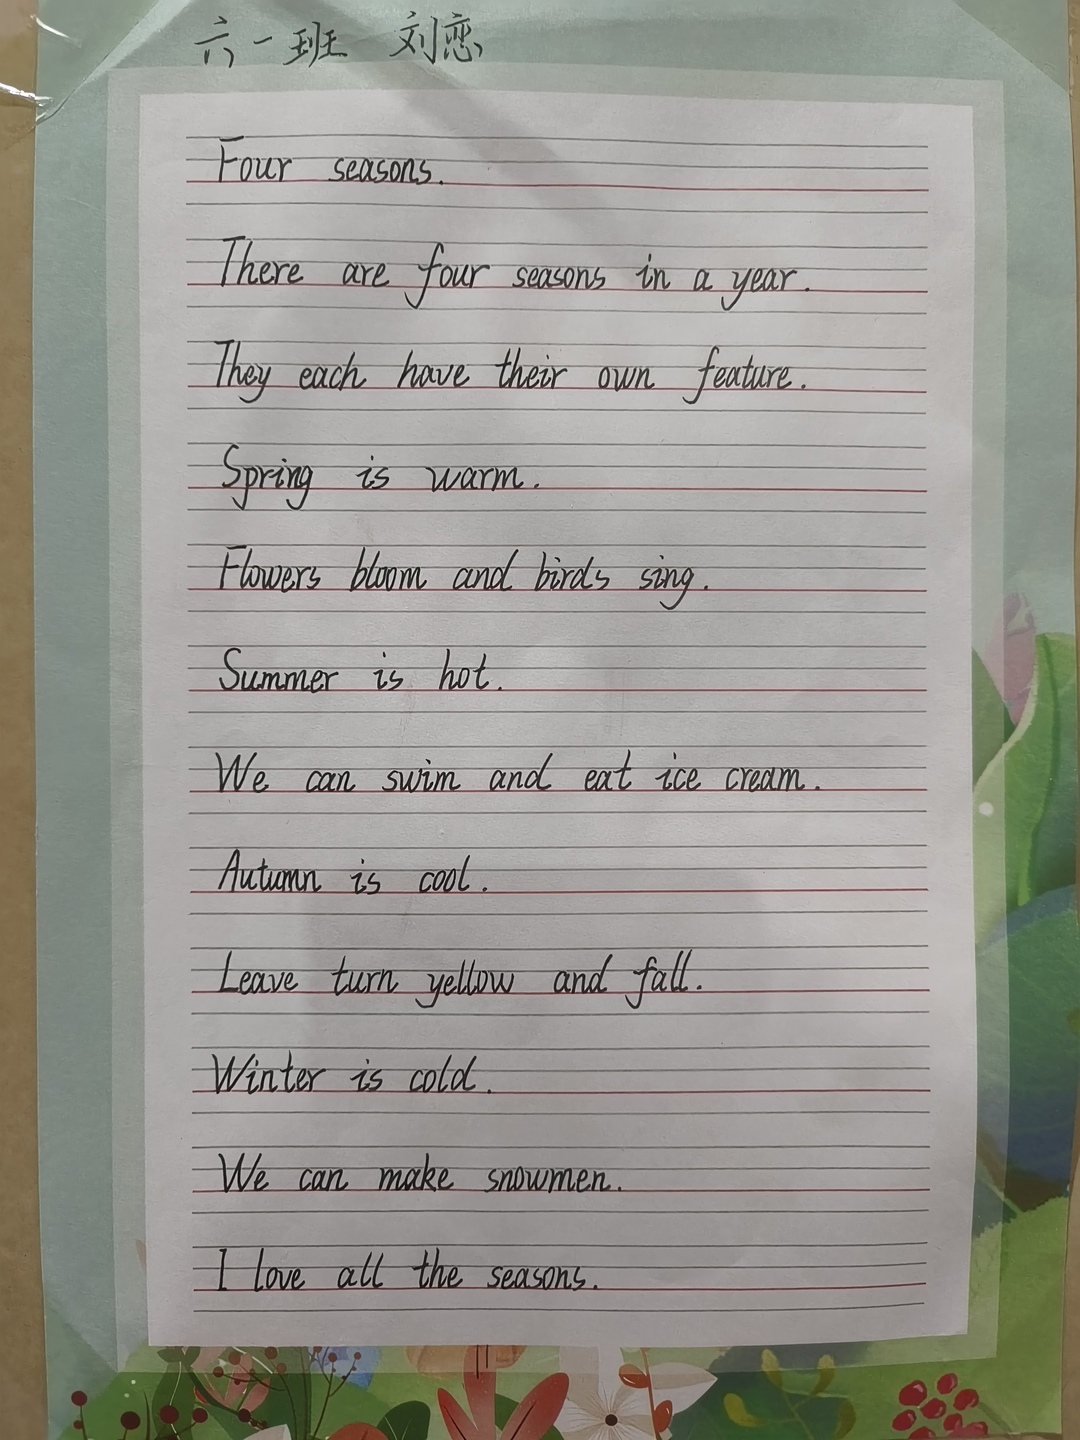 六一班 刘恋
Four seasons.
There are four seasons in a year.
They each have their own feature.
Spring is warm.
Flowers bloom and birds sing.
Summer is hot.
We can swim and eat ice cream.
Autumn is cool.
Leave turn yellow and fall.
Winter is cold.
We can make snowmen.
I love all the seasons.